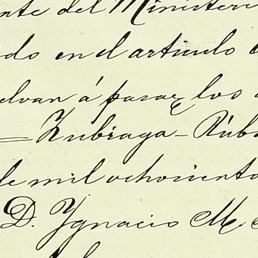 nte del Ministeri
do en el artículo
elvan á pasar los
Zubiaga - Rúb
de mil ochociento
D. Ygnacio M.